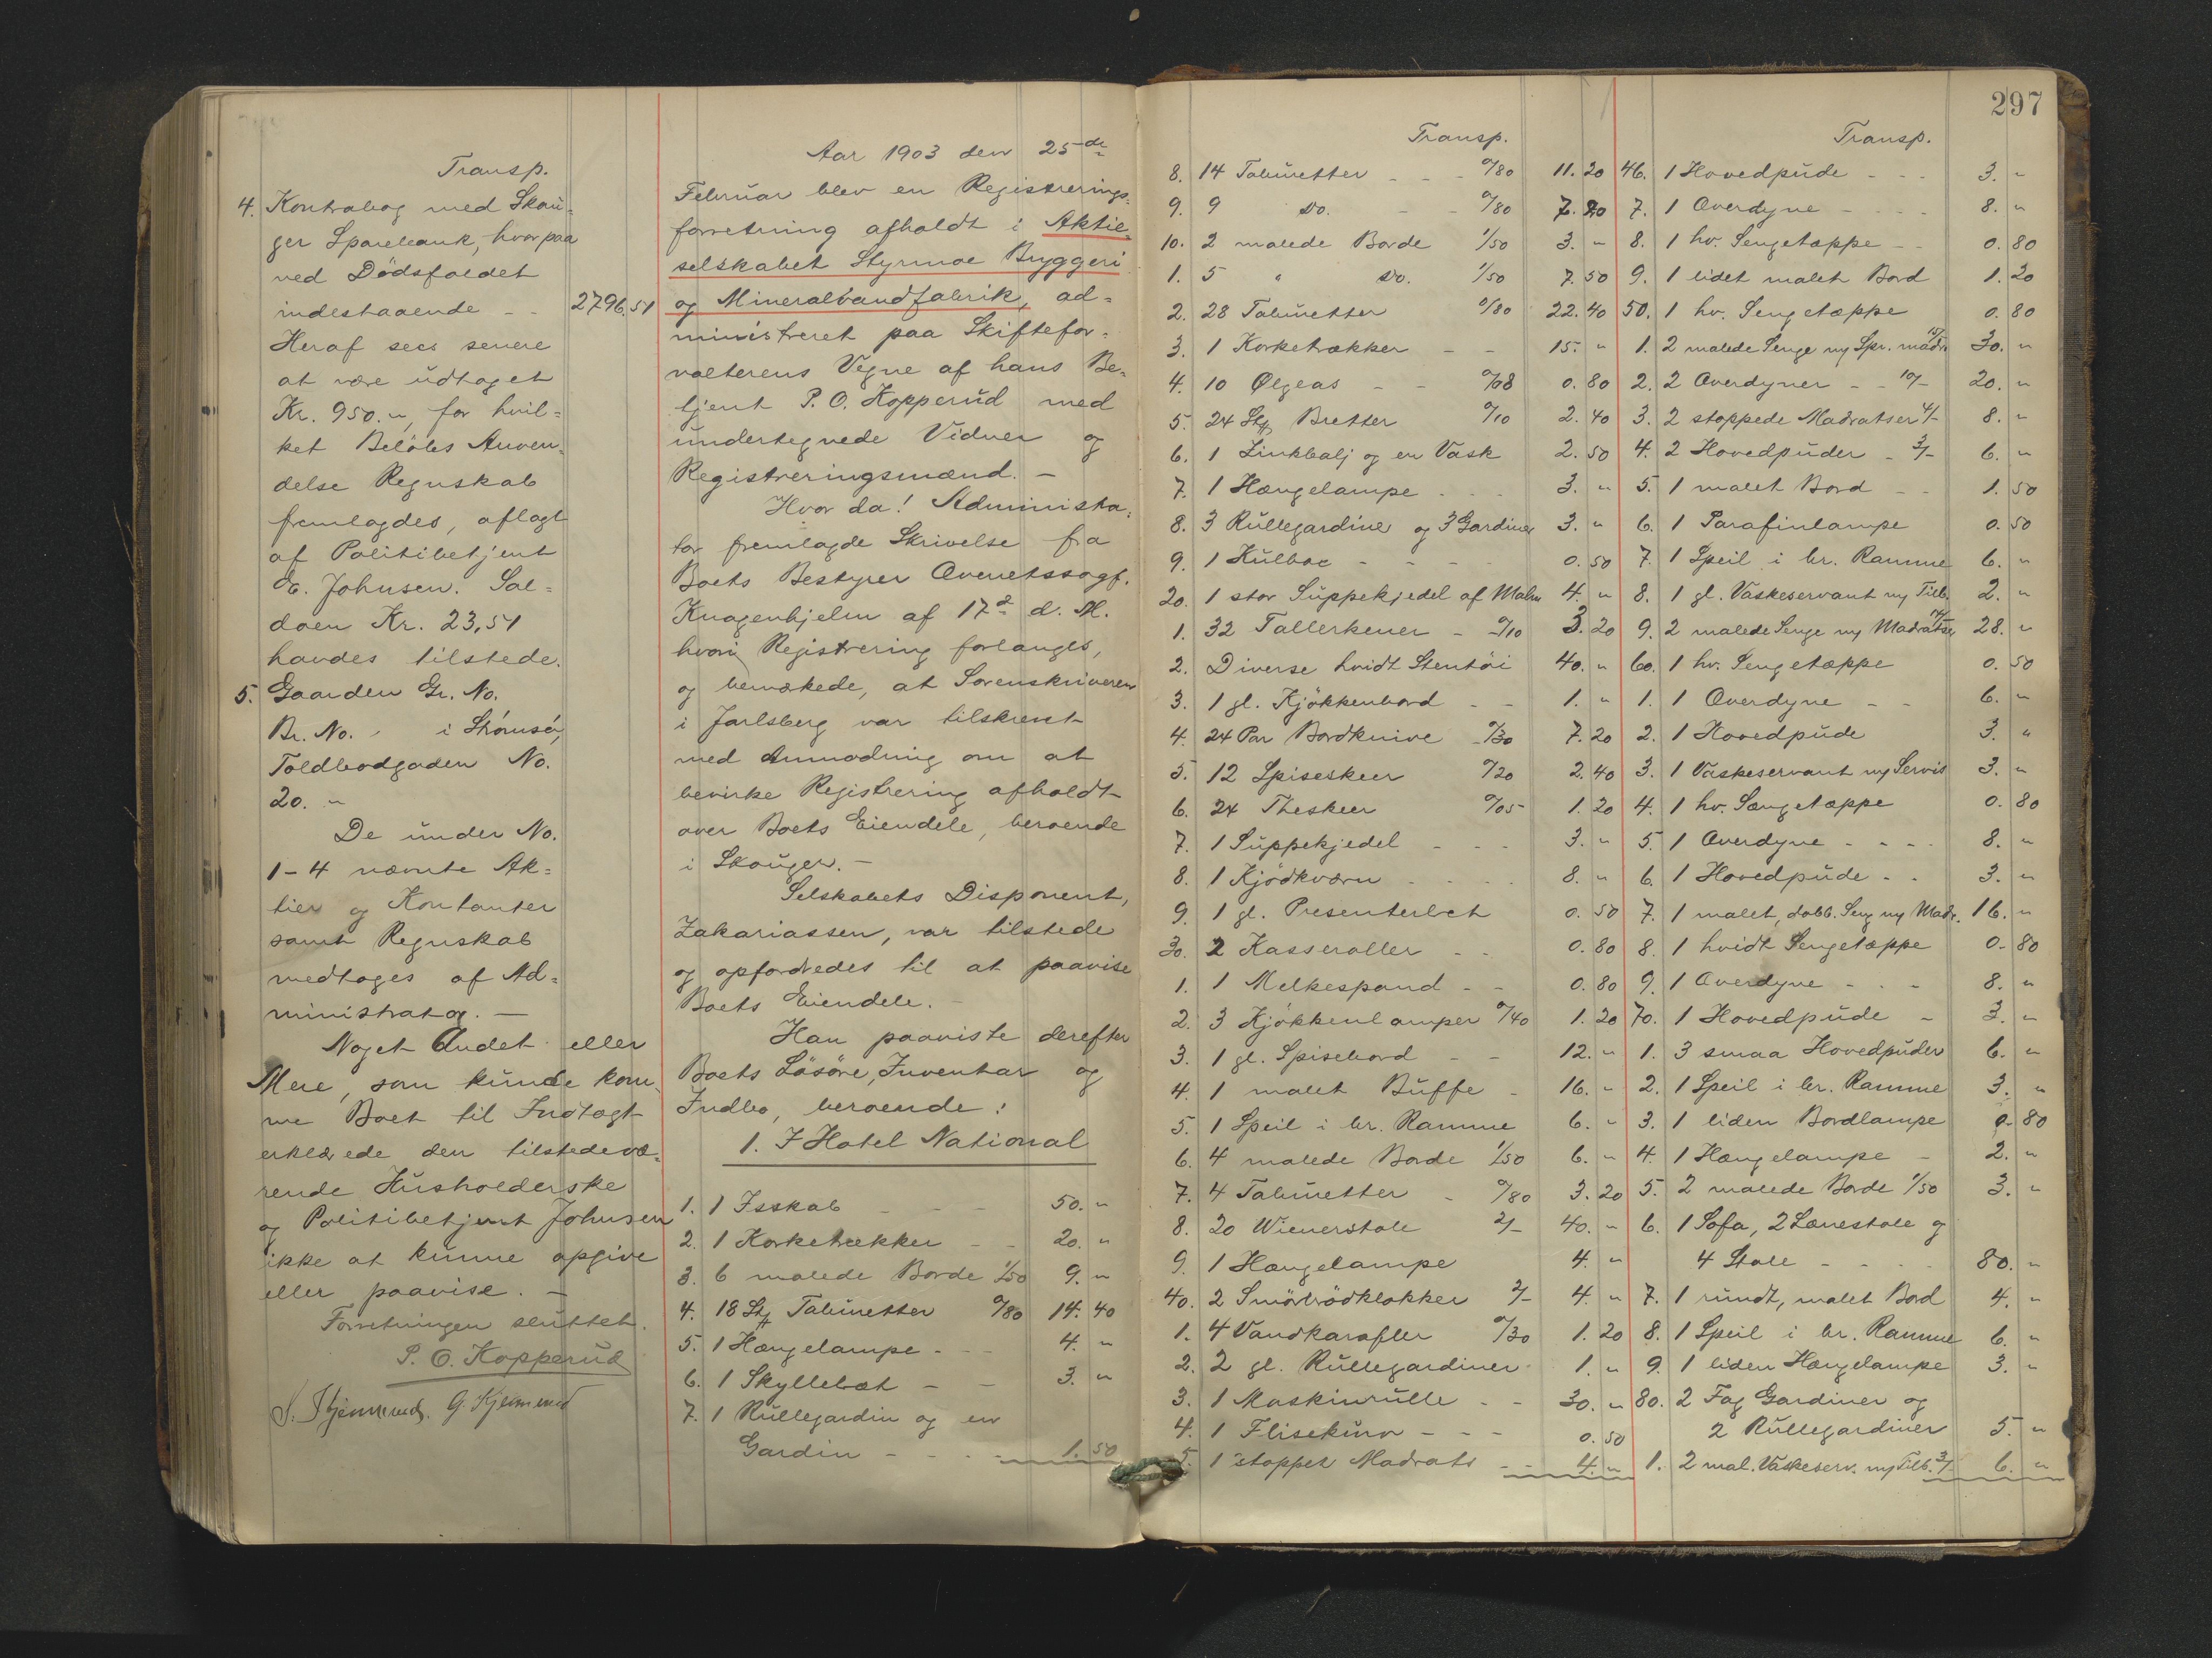 Transp.
4. Kontrabog med Skou-
ger Sparebank, hvorpaa
ved Dödsfaldet
indestaaende - - 2796.51
Heraf sees senere
at være udtaget
Kr. 950.", for hvil=
ket Belöbs Anven=
delse Regnskab
fremlagdes, aflagt
af Politibetjent
E. Johnsen. Sal=
doen Kr. 23,51
havdes tilstede.
5. Gaarden Gr. No.
Br. No. i Strömsö,
Toldbodgaden No.
20. "
De under No.
1-4 nævnte Ak=
tier og Kontanter
samt Regnskab
medtages af Ad=
ministrator. —
Noget Andet eller
Mere, som kunde kom=
me Boet til Indtægt
erklærede den tilstedevæ=
rende Husholderske
og Politibetjent Johnsen
ikke at kunne opgive
eller paavise. —
Forretningen sluttet.
P. O. Kopperud
G. Kjemerud
Aar 1903 den 25de
Februar blev en Registrerings=
forretning afholdt i Aktie=
selskabet Styrmoe Bryggeri
og Mineralvandfabrik, ad=
ministreret paa Skiftefor=
valterens Vegne af hans Be=
tjent P. O. Kopperud med
undertegnede Vidner og
Registreringsmænd. —
Hvor da! Administra=
tor fremlagde Skrivelse fra
Boets Bestyrer Overretssagf.
Knagenhjelm af 17de d. M.
hvori Registrering forlanges,
og bemærkede, at Sorenskriveren
i Jarlsberg var tilskrevet
med Anmodning om at
bevirke Registrering afholdt
over Boets Eiendele, beroende
i Skouger. —
Selskabets Disponent,
Zakariassen, var tilstede
og opfordredes til at paavise
Boets Eiendele. —
Han paaviste derefter
Boets Lösöre, Inventar og
Indbo, beroende:
1. I Hotel National
1. 1 Isskab - - - 50. "
2. 1 Korketrækker - - 20. "
3. 6 malede Borde 1/50 9. "
4. 18 Stk Taburetter 0/80 14.40
5. 1 Hængelampe - - 4. "
6. 1 Skyllebæt - - 3. "
7. 1 Rullegardin og en
Gardin - - - - 1.50
297
Transp.
8. 14 Taburetter - - - 0/80 11.20
9. 9 Do. - - 0/80 7.20
10. 2 malede Borde 1/50 3. "
1. 5 " Do. 1/50 7.50
2. 28 Taburetter 0/80 22.40
3. 1 Korketrækker - - 15. "
4. 10 Ølglas - - 0/08 0.80
5. 24 Stk Bretter 0/10 2.40
6. 1 Zinkbalj og en Vask 2.50
7. 1 Hængelampe - - - 3. "
8. 3 Rullegardiner og 3 Gardiner 3. "
9. 1 Kulbox - - - - 0.50
20. 1 stor Suppekjedel af Malm 4. "
1. 32 Tallerkener - 0/10 3.20
2. Diverse hvidt Stentöi 40. "
3. 1 gl. Kjökkenbord - - 1. "
4. 24 Par Bordknive 0/30 7.20
5. 12 Spiseskeer 0/20 2.40
6. 24 Theskeer 0/05 1.20
7. 1 Suppekjedel - - - 3. "
8. 1 Kjödkværn - - - - 8. "
9. 1 gl. Presenterbret 0.50
30. 2 Kasseroller - - 0.80
1. 1 Melkespand - - 0.80
2. 3 Kjökkenlamper 0/40 1.20
3. 1 gl. Spisebord - - 12. "
4. 1 malet Buffe - 16. "
5. 1 Speil i br. Ramme 6. "
6. 4 malede Borde 1/50 6. "
7. 4 Taburetter - 0/80 3.20
8. 20 Wienerstole 2/- 40. "
9. 1 Hængelampe 4. "
40. 2 Smörbrödklokker 2/- 4. "
1. 4 Vandkarafler 0/30 1.20
2. 2 gl. Rullegardiner 1. "
3. 1 Maskinrulle - - 30. "
4. 1 Flisekurv - - - 0.50
5. 1 stoppet Madrats - - 4. "
Transp.
46. 1 Hovedpude - - - 3. "
7. 1 Overdyne - - - - 8. "
8. 1 hv. Sengetæppe - - 0.80
9. 1 lidet malet Bord 1.20
50. 1 hv. Sengetæppe 0.80
1. 2 malede Senge m/ Spr. madr. 15/- 30. "
2. 2 Overdyner - - 10/- 20. "
3. 2 stoppede Madratser 4/- 8. "
4. 2 Hovedpuder - 3/- 6. "
5. 1 malet Bord - - 1.50
6. 1 Parafinlampe 0.50
7. 1 Speil i br. Ramme 6. "
8. 1 gl. Vaskeservant m/ Tilb. 2. "
9. 2 malede Senge m/ Madratser 14/- 28. "
60. 1 hv. Sengetæppe 0.50
1. 1 Overdyne - - 6. "
2. 1 Hovedpude 3. "
3. 1 Vaskeservant m/ Servis 3. "
4. 1 hv. Sængetæppe 0.80
5. 1 Overdyne - - - - 8. "
6. 1 Hovedpude - - 3. "
7. 1 malet, dobb. Seng m/ Madr. 16. "
8. 1 hvidt Sengetæppe 0.80
9. 1 Overdyne - - - 8. "
70. 1 Hovedpude - 3. "
1. 3 smaa Hovedpuder 6. "
2. 1 Speil i br. Ramme 3. "
3. 1 liden Bordlampe 0.80
4. 1 Hængelampe - 2. "
5. 2 malede Borde 1/50 3. "
6. 1 Sofa, 2 Lænestole og
4 Stole - - - - 80. "
7. 1 rundt, malet Bord 4. "
8. 1 Speil i br. Ramme 6. "
9. 1 liden Hængelampe 3. "
80. 2 Fag Gardiner og
2 Rullegardiner 5. "
1. 2 mal. Vaskeserv. m/ Tilb. 3/- 6. "